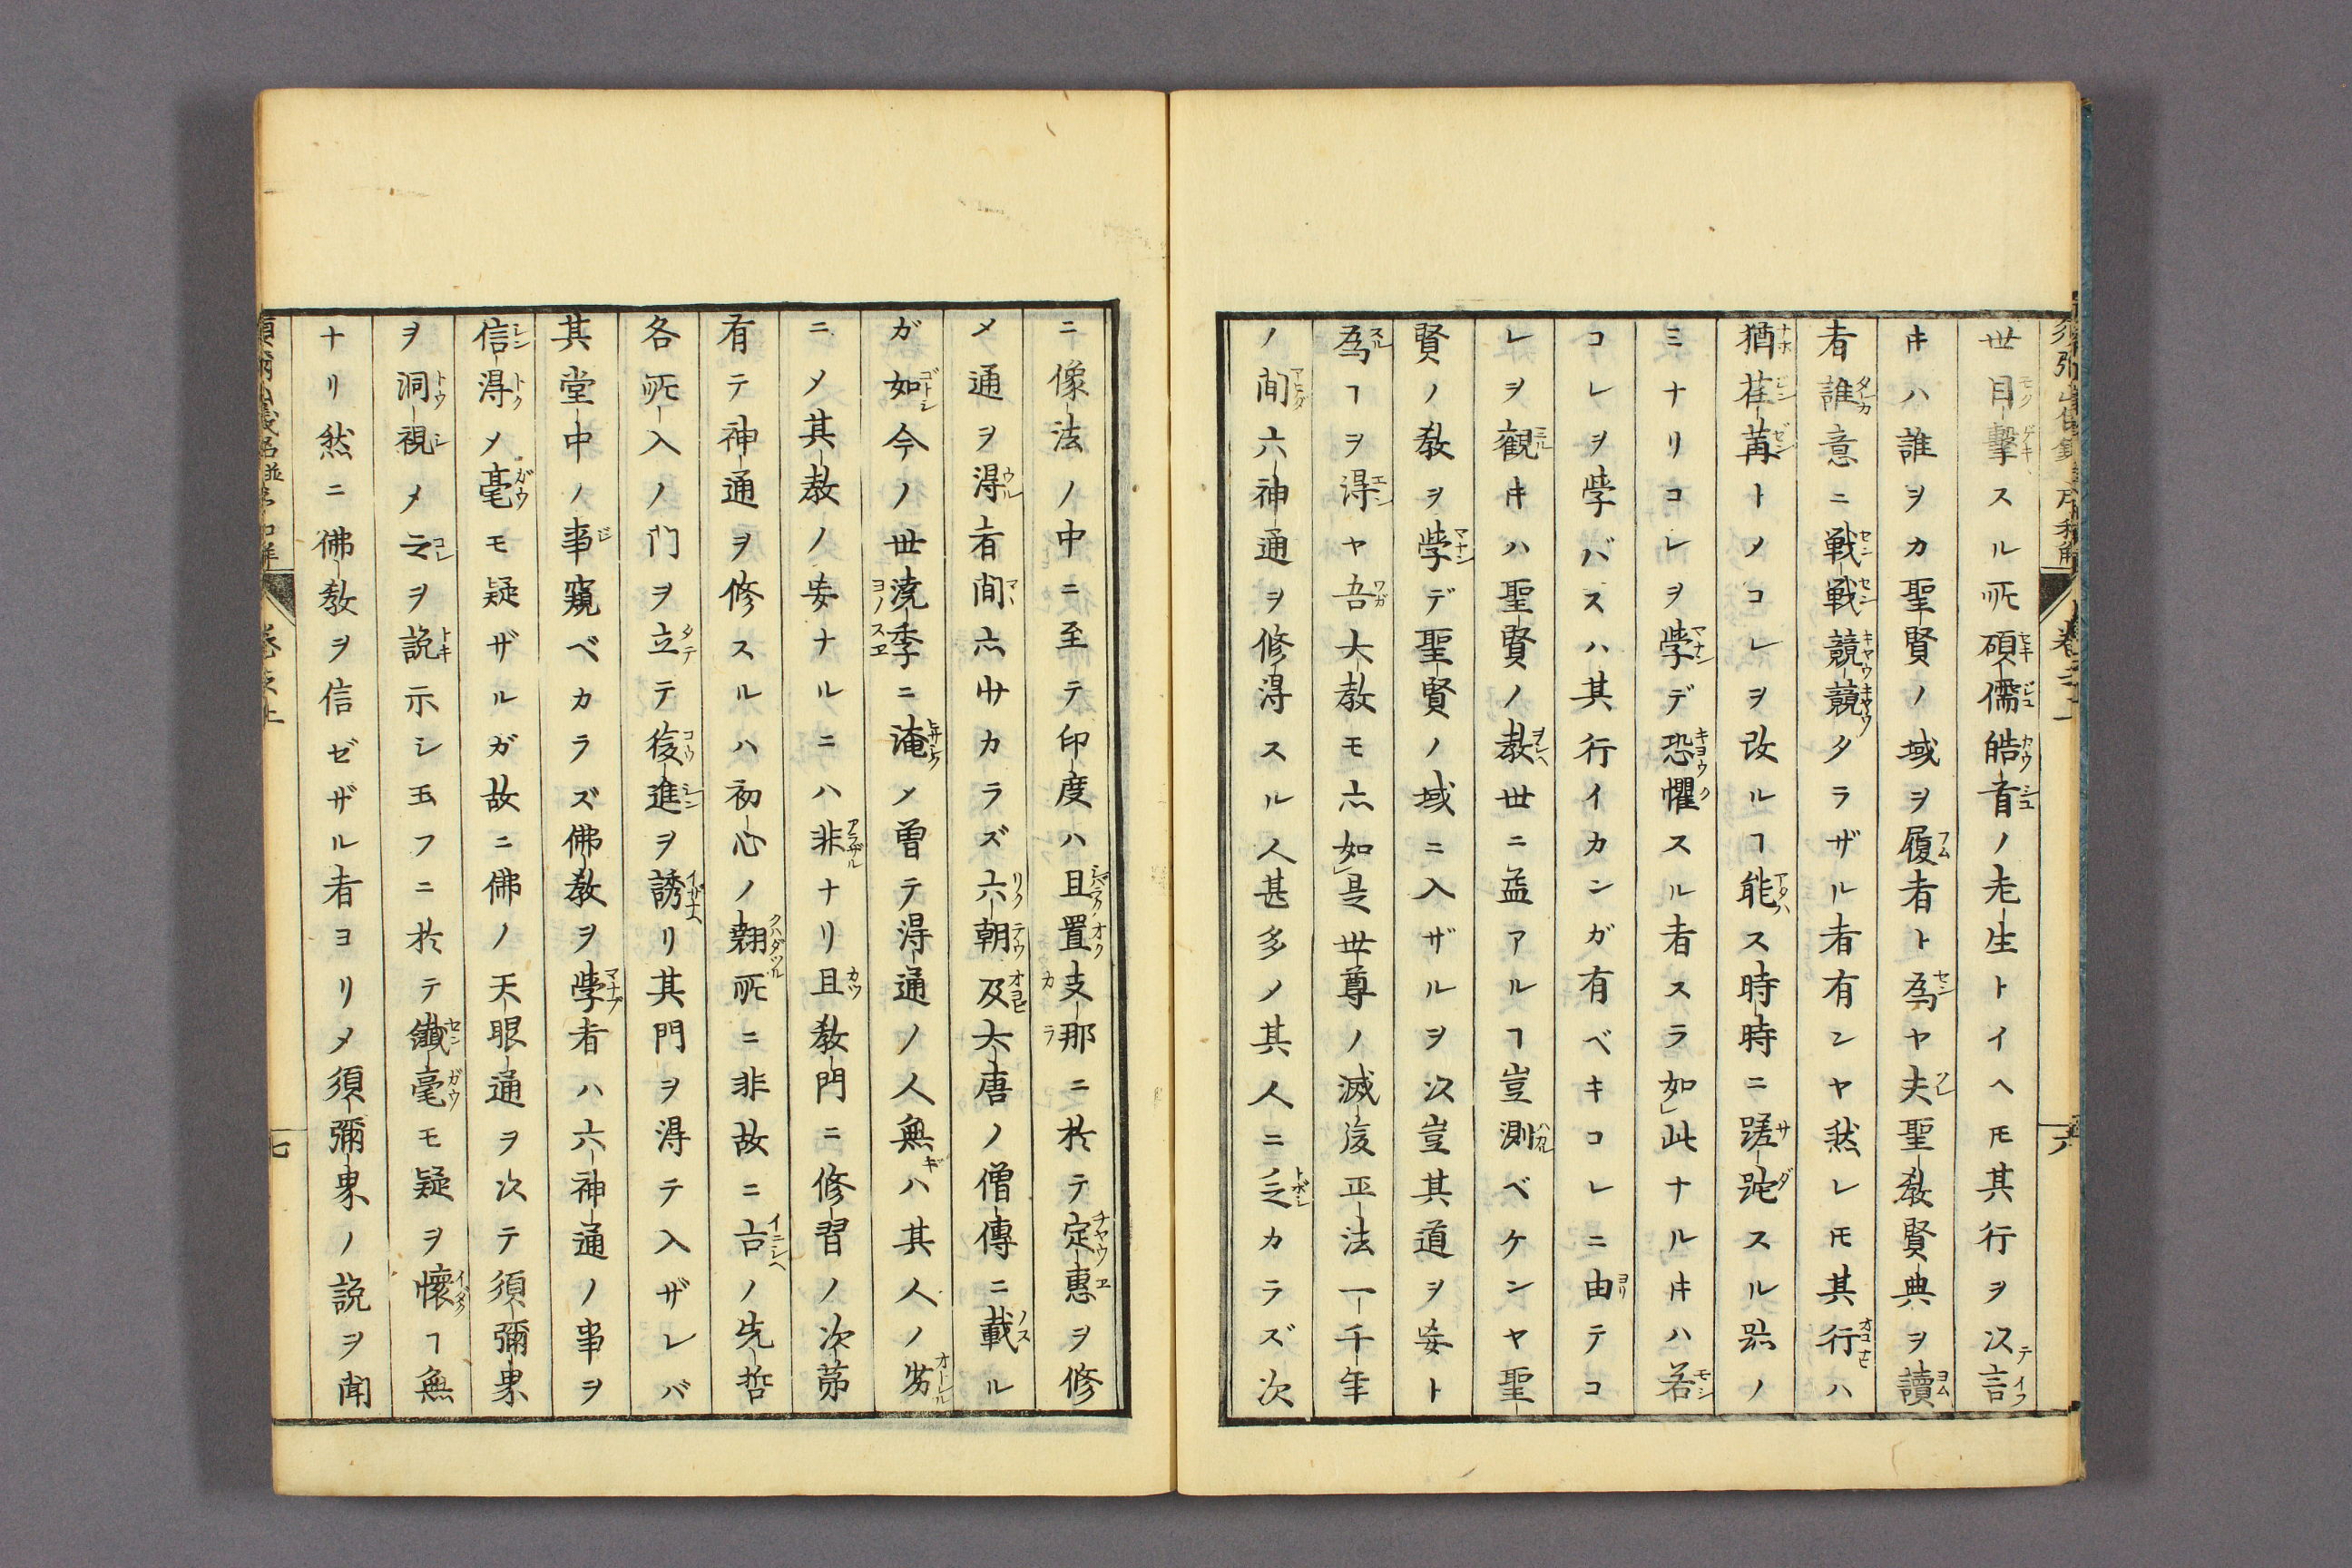 世目撃スル所碩儒皓首ノ老生トイヘ𪜈其行ヲ以テ言フ
𪜈ハ誰ヲカ聖賢ノ域ヲ履者ト為ヤ夫聖教賢典ヲ讀
者誰意ニ戦戦兢兢タラザル者有ンヤ然レ𪜈其行ハ
猶荏苒トメコレヲ改ルヿ能ス時時ニ蹉跎スル㒵ノ
ミナリコレヲ學デ恐懼スル者スラ如此ナルキハ若
コレヲ學バスハ其行イカンガ有ベキコレニ由テコ
レヲ觀キハ聖賢ノ教世ニ益アルヿ豈測ベケンヤ聖
賢ノ教ヲ學デ聖賢ノ域ニ入ザルヲ以豈其道ヲ妄ト
為ヿヲ得ヤ吾大教モ亦如是世尊ノ滅後正法一千年
ノ間六神通ヲ修得スル人甚多ノ其人ニ乏カラズ次
ニ像法ノ中ニ至テ印度ハ且置支那ニ於テ定惠ヲ修
メ通ヲ得者間亦少カラズ六朝及大唐ノ僧傳ニ載ル
ガ如今ノ世澆季ニ淹メ曽テ得通ノ人無ハ其人ノ劣
ニメ其教ノ妄ナルニハ非ナリ且教門ニ修習ノ次第
有テ神通ヲ修スルハ初心ノ翹所ニ非故ニ古ノ先哲
各所入ノ門ヲ立テ後進ヲ誘リ其門ヲ得テ入ザレバ
其堂中ノ事窺ベカラズ佛教ヲ學者ハ六神通ノ事ヲ
信得メ毫モ疑ザルガ故ニ佛ノ天眼通ヲ以テ須彌界
ヲ洞視メ之ヲ説示シ玉フニ於テ纖毫モ疑ヲ懷ヿ無
ナリ然ニ佛教ヲ信ゼザル者ヨリメ須彌界ノ説ヲ聞
卷之上
七